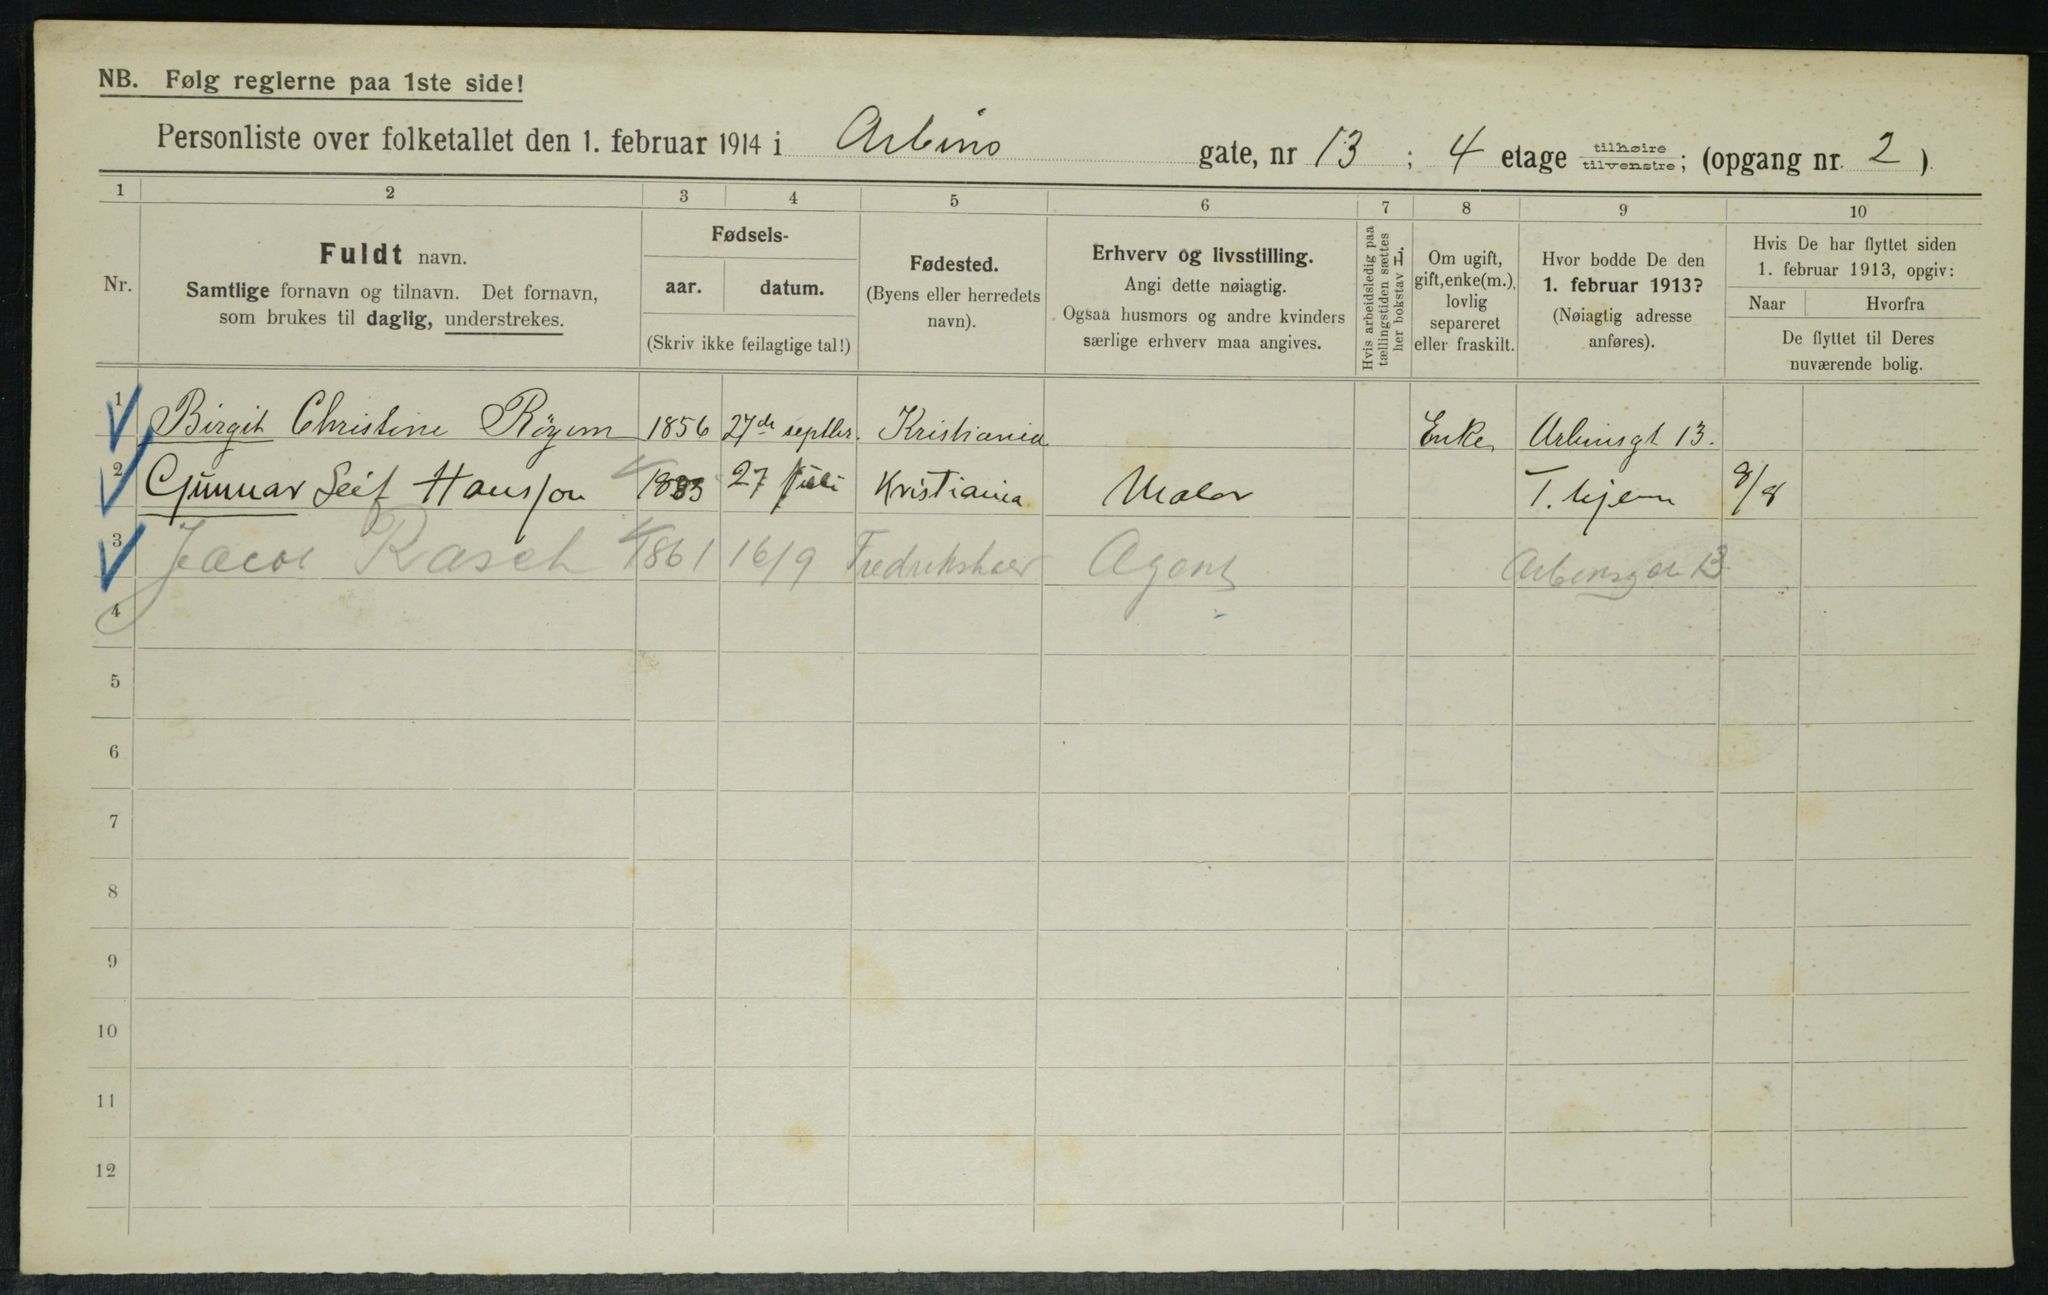 NB. Følg reglerne paa 1ste side!
Personliste over folketallet den 1. februar 1914 i Arbins gate, nr 13 ; 4 etage tilhøire tilvenstre; (opgang nr. 2 ).
1 2 3 4 5 6 7 8 9 10
Nr.
Fuldt navn.
Samtlige fornavn og tilnavn. Det fornavn,
som brukes til daglig, understrekes.
Fødsels-
aar. datum.
(Skriv ikke feilagtige tal!)
Fødested.
(Byens eller herredets
navn).
Erhverv og livsstilling.
Angi dette nøiagtig.
Ogsaa husmors og andre kvinders
særlige erhverv maa angives.
Hvis arbeidsledig paa
tællingstiden sættes
her bokstav L.
Om ugift,
gift, enke(m.),
lovlig
separeret
eller fraskilt.
Hvor bodde De den
1. februar 1913?
(Nøiagtig adresse
anføres).
Hvis De har flyttet siden
1. februar 1913, opgiv:
Naar Hvorfra
De flyttet til Deres
nuværende bolig.
1 Birgit Christine 1856 27de septbr. Kristiania Enke Arbinsgt 13.
2 Gunnar Leif Hansson 1883 27 juli Kristiania Maler T. hjem 8/8
3 Jacob Rasch 1861 16/9 Fredrikshald Agent Arbinsgt 13
4
5
6
7
8
9
10
11
12